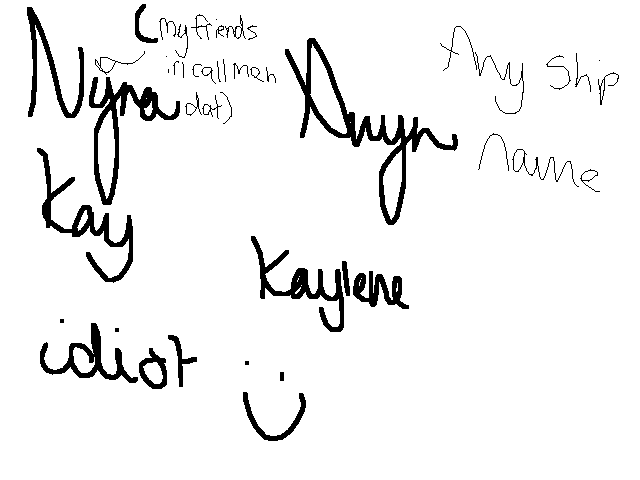 Nyra
(my friends
irl call meh
dat)
Anyn
Any ship
name
Kay
Kaylene
idiot
:)